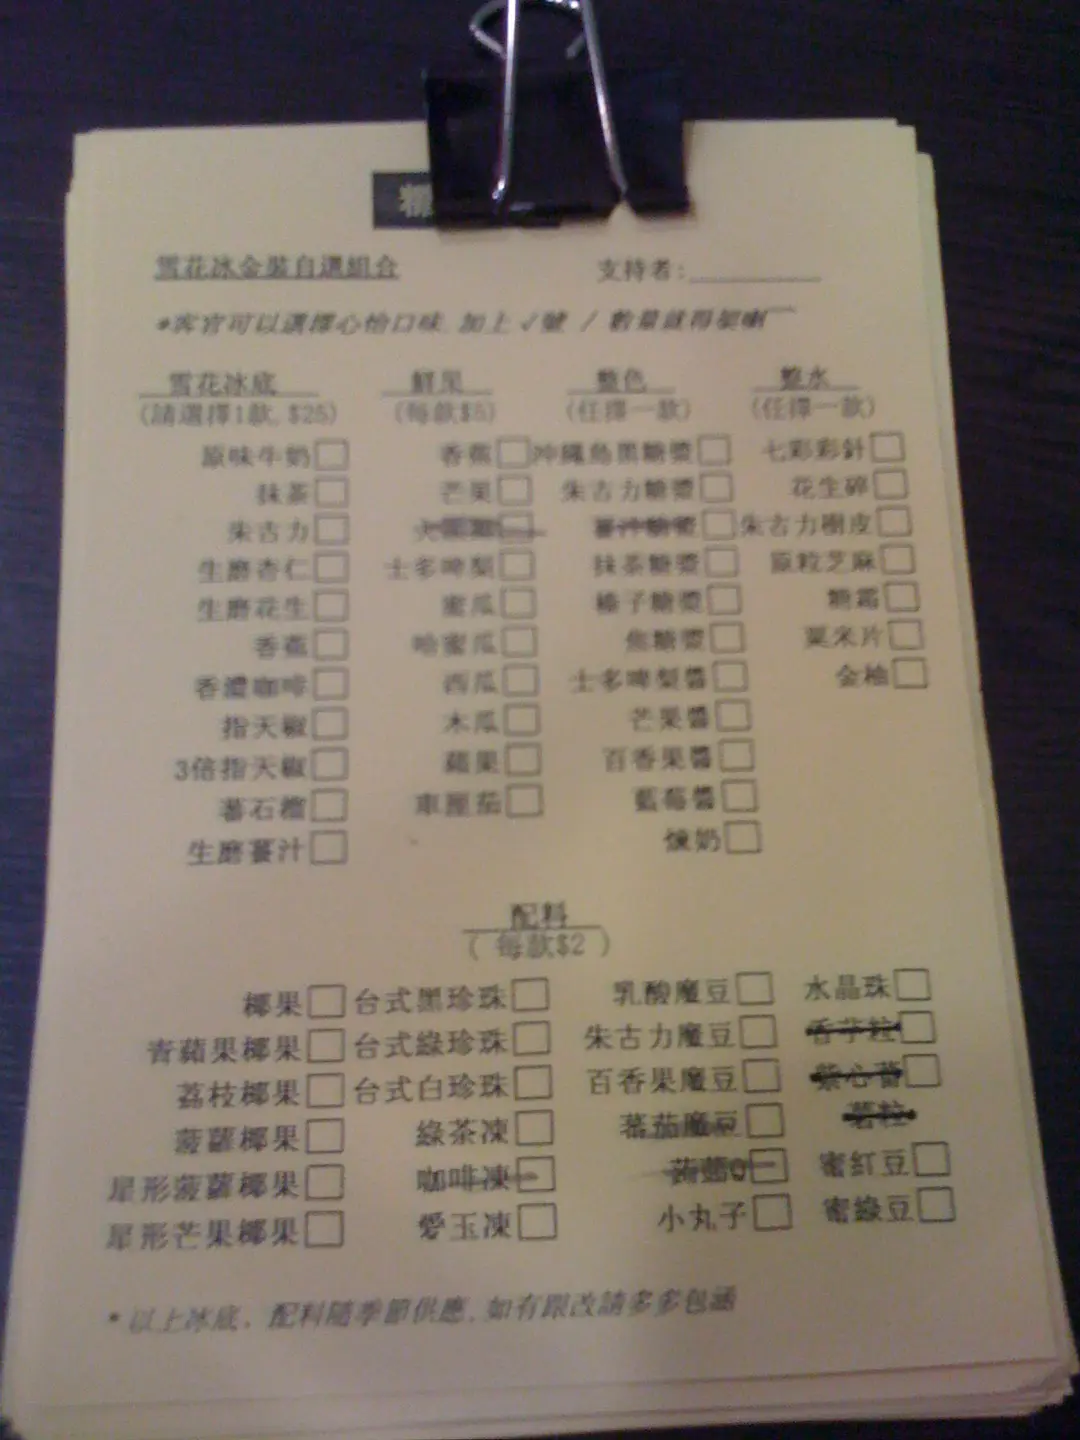 雪花冰金裝自選組合 支持者:
*客官可以選擇心怡口味, 加上√號 / 數量就得架喇
雪花冰底 鮮果 整色 整水
(請選擇1款, $25) (每款$5) (任擇一款) (任擇一款)
原味牛奶 香蕉 沖繩島黑糖漿 七彩彩針
抹茶 芒果 朱古力糖漿 花生碎
朱古力 火龍果 薑汁糖漿 朱古力樹皮
生磨杏仁 士多啤梨 抹茶糖漿 原粒芝麻
生磨花生 蜜瓜 榛子糖漿 糖霜
香蕉 哈蜜瓜 焦糖漿 粟米片
香濃咖啡 西瓜 士多啤梨醬 金柚
指天椒 木瓜 芒果醬
3倍指天椒 蘋果 百香果醬
蕃石榴 車厘茄 藍莓醬
生磨薑汁 煉奶
配料
( 每款$2 )
椰果 台式黑珍珠 乳酸魔豆 水晶珠
青蘋果椰果 台式綠珍珠 朱古力魔豆 香芋粒
荔枝椰果 台式白珍珠 百香果魔豆 紫心蕃
菠蘿椰果 綠茶凍 蕃茄魔豆 薯粒
星形菠蘿椰果 咖啡凍 蒟蒻Q 蜜紅豆
星形芒果椰果 愛玉凍 小丸子 蜜綠豆
* 以上冰底、配料隨季節供應, 如有跟改請多多包涵